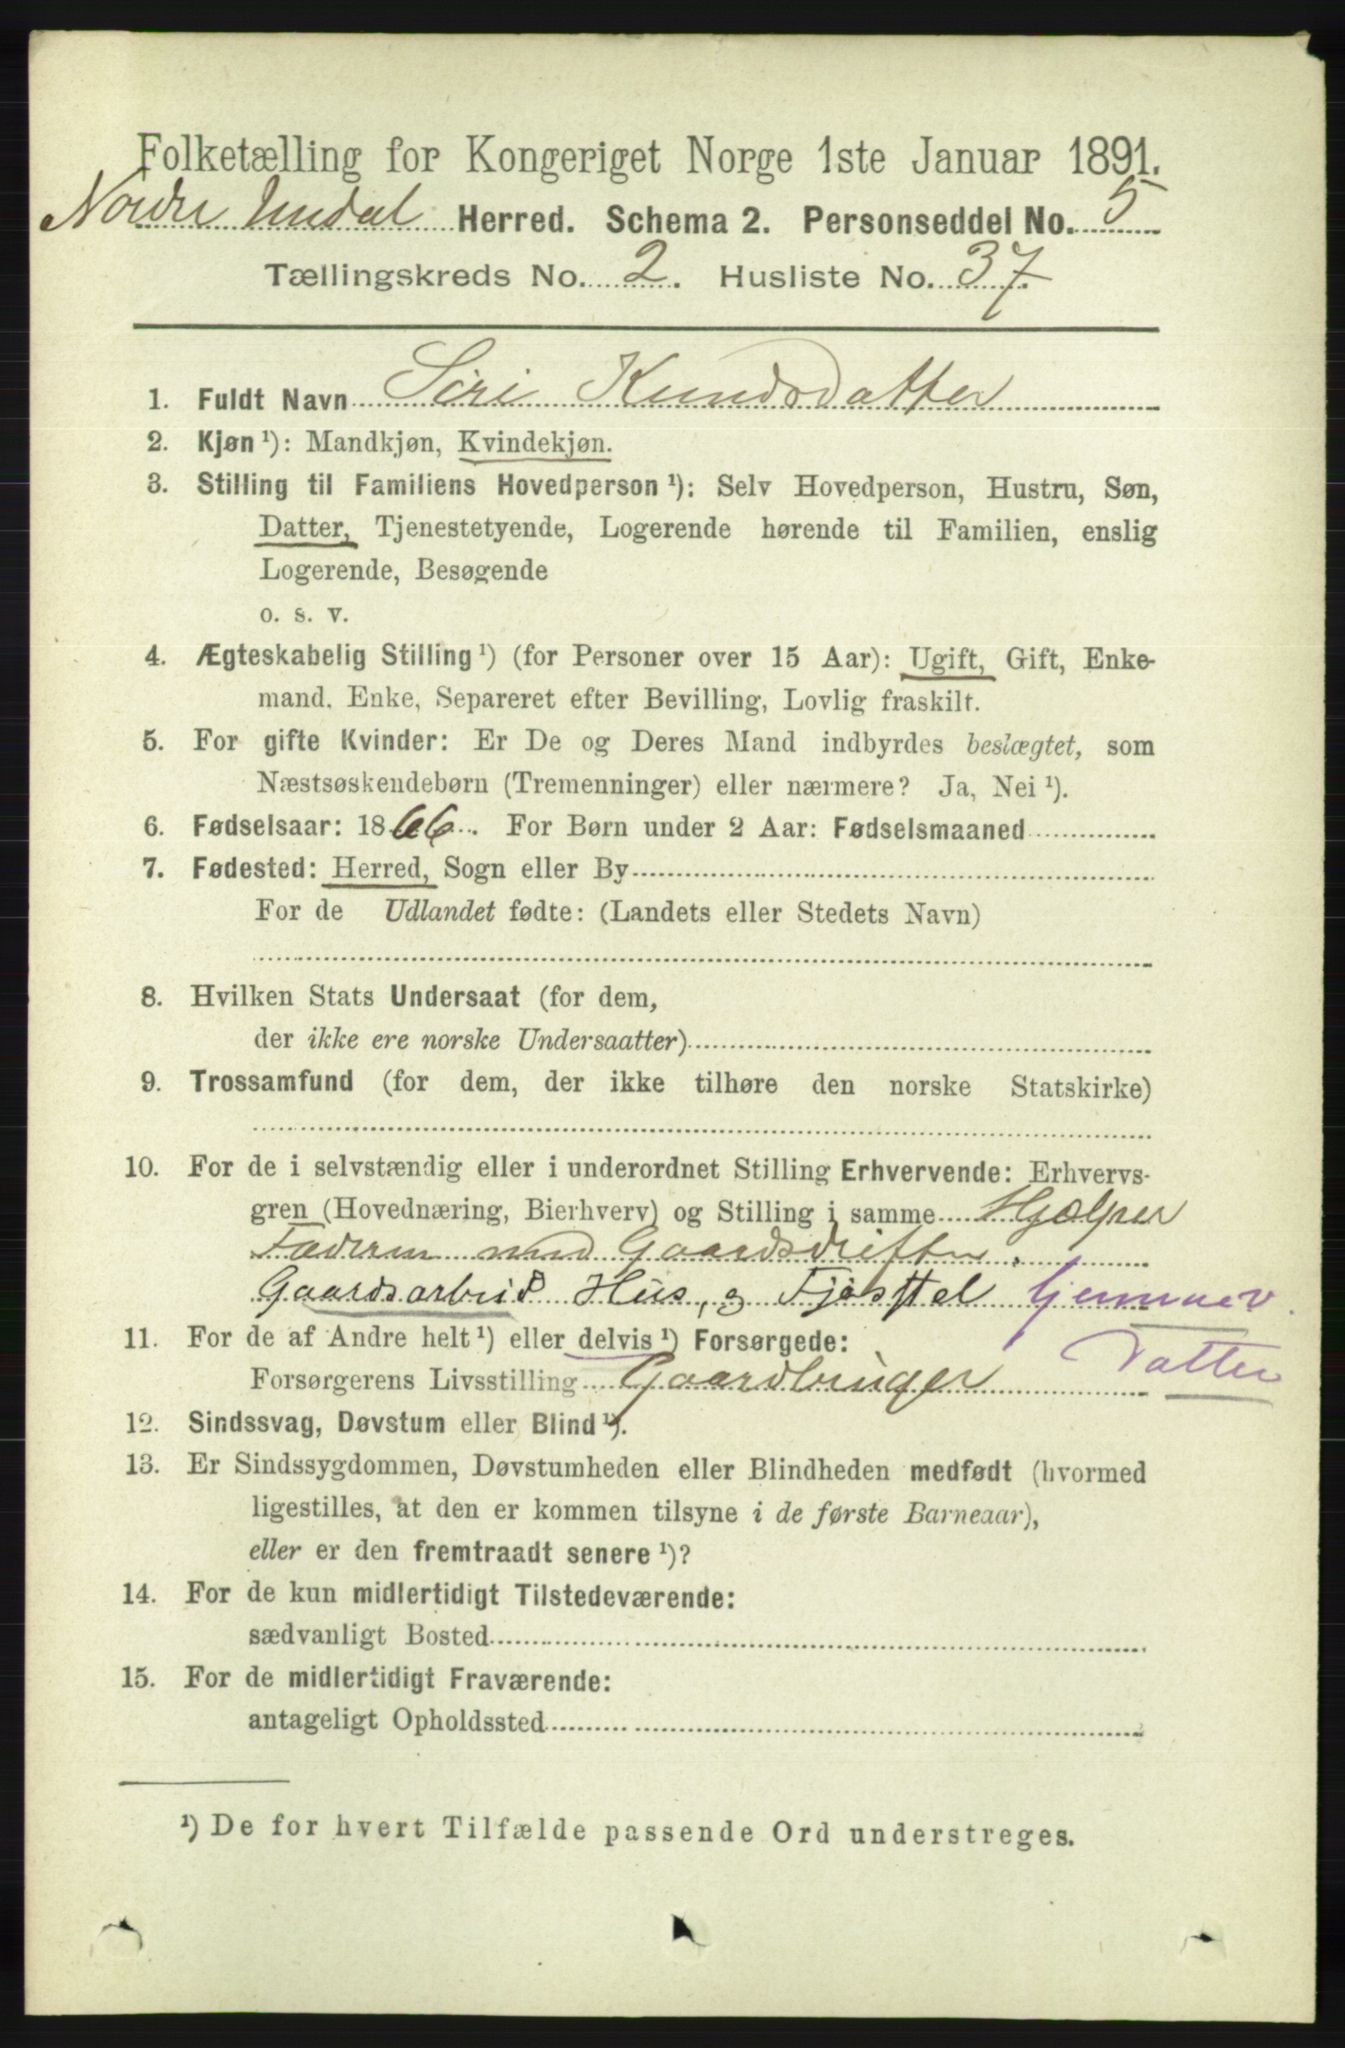 Folketælling for Kongeriget Norge 1ste Januar 1891.
Nordre Undal Herred. Schema 2. Personseddel No. 5
Tællingskreds No. 2. Husliste No. 37.
1. Fuldt Navn Siri Knudsdatter
2. Kjøn ¹): Mandkjøn, Kvindekjøn.
3. Stilling til Familiens Hovedperson ¹): Selv Hovedperson, Hustru, Søn,
Datter, Tjenestetyende, Logerende hørende til Familien, enslig
Logerende, Besøgende
o. s. v.
4. Ægteskabelig Stilling ¹) (for Personer over 15 Aar): Ugift, Gift, Enke-
mand, Enke, Separeret efter Bevilling, Lovlig fraskilt.
5. For gifte Kvinder: Er De og Deres Mand indbyrdes beslægtet, som
Næstsøskendebørn (Tremenninger) eller nærmere? Ja, Nei ¹).
6. Fødselsaar: 1866. For Børn under 2 Aar: Fødselsmaaned
7. Fødested: Herred, Sogn eller By
For de Udlandet fødte: (Landets eller Stedets Navn)
8. Hvilken Stats Undersaat (for dem,
der ikke ere norske Undersaatter)
9. Trossamfund (for dem, der ikke tilhøre den norske Statskirke)
10. For de i selvstændig eller i underordnet Stilling Erhvervende: Erhvervs-
gren (Hovednæring, Bierhverv) og Stilling i samme Hjælper
Faderen med Gaardsdriften.
Gaardsarbeid Hus, og Fjøsstel
11. For de af Andre helt ¹) eller delvis ¹) Forsørgede: Datter
Forsørgerens Livsstilling Gaardbruger
12. Sindssvag, Døvstum eller Blind ¹).
13. Er Sindssygdommen, Døvstumheden eller Blindheden medfødt (hvormed
ligestilles, at den er kommen tilsyne i de første Barneaar),
eller er den fremtraadt senere ¹)?
14. For de kun midlertidigt Tilstedeværende:
sædvanligt Bosted
15. For de midlertidigt Fraværende:
antageligt Opholdssted
¹) De for hvert Tilfælde passende Ord understreges.